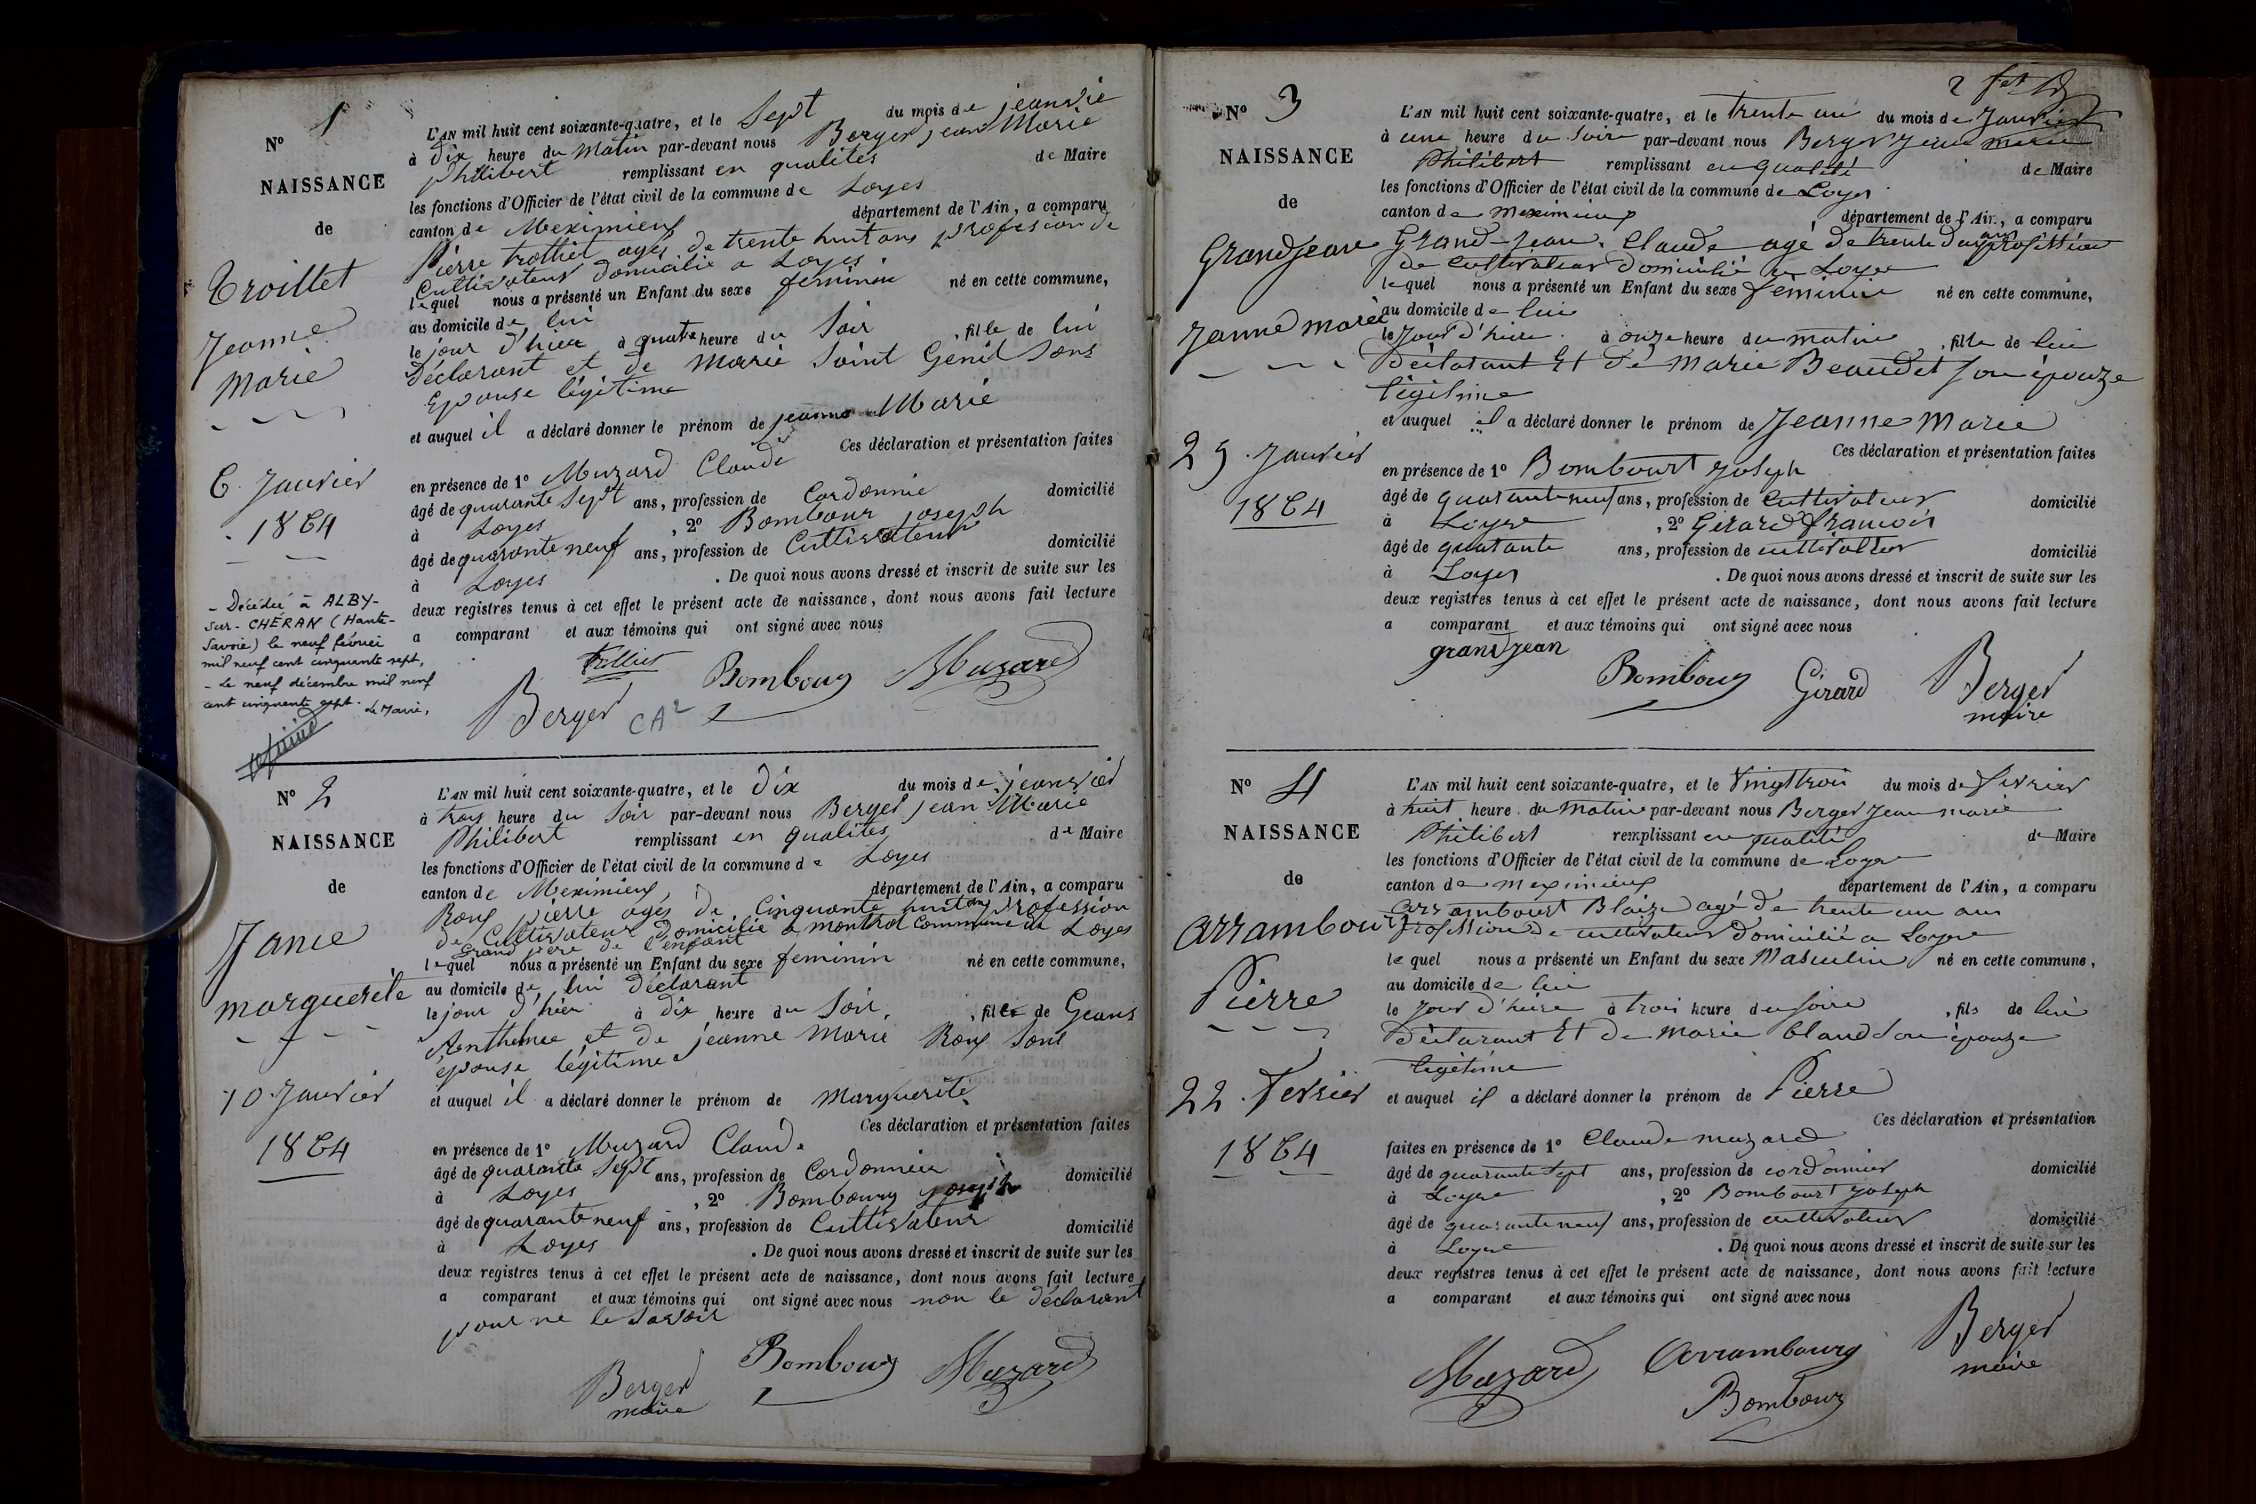 N° 1
NAISSANCE
de
Troillet
Jeanne
Marie
6 Janvier
1864
- Décédée à ALBY-
sur-CHÉRAN (Haute-
Savoie) le neuf février
mil neuf cent cinquante sept,
- Le neuf décembre mil neuf
cent cinquante sept. Le Maire,
L'AN mil huit cent soixante-quatre, et le Sept du mois de jeanvié
à Dix heure du Matin par-devant nous Berger jean Marie
philibert remplissant en qualités de Maire
les fonctions d'Officier de l'état civil de la commune de Loyes
canton de Meximieux département de l'Ain, a comparu
Pierre trolliet agés de trente huit ans profession de
Cultivateur domicilié a Loyes
lequel nous a présenté un Enfant du sexe feminin né en cette commune,
au domicile de lui
le jour d'hier à quatre heure du Soir , fille de lui
Déclarant et de Marie Saint Genis Sons
Epouse légitime
et auquel il a déclaré donner le prénom de jeanne Marie
Ces déclaration et présentation faites
en présence de 1° Muzard Claude
âgé de quarante Sept ans, profession de Cordonnie domicilié
à Loyes , 2° Bombour joseph
âgé de quarante neuf ans, profession de Cultivateur domicilié
à Loyes . De quoi nous avons dressé et inscrit de suite sur les
deux registres tenus à cet effet le présent acte de naissance, dont nous avons fait lecture
a comparant et aux témoins qui ont signé avec nous
Trolliet Bombouz Muzard
Berger CA2
N° 2
NAISSANCE
de
Janie
marguerite
10 Janvier
1864
L'AN mil huit cent soixante-quatre, et le Dix du mois de jeanvier
à trois heure du Soir par-devant nous Berger jean Marie
Philibert remplissant en qualités de Maire
les fonctions d'Officier de l'état civil de la commune de Loyes
canton de Meximieux, département de l'Ain, a comparu
Roux pierre agés de Cinquante huit ans profession
De Cultivateur Domicilié a montrol Commune de Loyes
Grand père de l'enfant
lequel nous a présenté un Enfant du sexe feminin né en cette commune,
au domicile de lui déclarant
le jour d'hier à dix heure du Soir, , fille de Geans
Anthelmee et de jeanne Marie Roux Sons
épouse légitime
et auquel il a déclaré donner le prénom de Marguerite
Ces déclaration et présentation faites
en présence de 1° Muzard Claude
âgé de quarante Sept ans, profession de Cordonnier domicilié
à Loyes , 2° Bombourg joseph
âgé de quarante neuf ans, profession de Cultivateur domicilié
à Loyes . De quoi nous avons dressé et inscrit de suite sur les
deux registres tenus à cet effet le présent acte de naissance, dont nous avons fait lecture
a comparant et aux témoins qui ont signé avec nous non le déclarant
pour ne le savoir
Berger Bombouz Muzard
maire
2
N° 3
NAISSANCE
de
Grandjean
Janne marie
29 Janvier
1864
L'AN mil huit cent soixante-quatre, et le trente un du mois de Janvier
à une heure du Soire par-devant nous Berger Jean marie
Philibert remplissant en qualité de Maire
les fonctions d'Officier de l'état civil de la commune de Loyes
canton de meximieux département de l'Ain, a comparu
Grand-Jean Claude agé de trente deux ans profession
de cultivateur domicilié a Loyes
lequel nous a présenté un Enfant du sexe feminin né en cette commune,
au domicile de lui
le Jour d'hiere à onze heure du matin , fille de lui
déclarant Et de Marie Beaudet son épouze
légitime
et auquel il a déclaré donner le prénom de Jeanne Marie
Ces déclaration et présentation faites
en présence de 1° Bombourt Joseph
âgé de quarante neuf ans, profession de cultivateur domicilié
à Loyse , 2° Gérard francois
âgé de quarante ans, profession de cultivateur domicilié
à Loyes . De quoi nous avons dressé et inscrit de suite sur les
deux registres tenus à cet effet le présent acte de naissance, dont nous avons fait lecture
a comparant et aux témoins qui ont signé avec nous
grandjean
Bombouz Gérard Berger
maire
N° 4
NAISSANCE
de
Arrambourg
Pierre
22 Fevrier
1864
L'AN mil huit cent soixante-quatre, et le Vingt trois du mois de fevrier
à huit heure du Matin par-devant nous Berger Jean marie
Philibert remplissant en qualité de Maire
les fonctions d'Officier de l'état civil de la commune de Loyse
canton de meximieux département de l'Ain, a comparu
arrambourt Blaize agé de trente un ans
profession de cultivateur domicilié a Loyse
le quel nous a présenté un Enfant du sexe Masculin né en cette commune,
au domicile de lui
le Jour d'hiere à trois heure du soire , fils de lui
déclarant Et de Marie Claud son épouze
légitime
et auquel il a déclaré donner le prénom de Pierre
Ces déclaration et présentation
faites en présence de 1° Claude muzard
âgé de quarante sept ans, profession de cordonnier domicilié
à Loyse , 2° Bombourt Joseph
âgé de quarante neuf ans, profession de cultivateur domicilié
à Loyse . De quoi nous avons dressé et inscrit de suite sur les
deux registres tenus à cet effet le présent acte de naissance, dont nous avons fait lecture
a comparant et aux témoins qui ont signé avec nous
Muzard Arrambourg Berger
maire
Bombouz